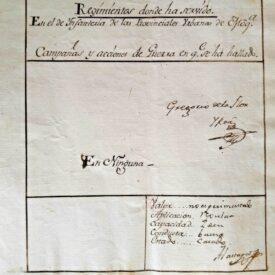 Regimientos donde ha servido.
En el de Infanteria de las Provinciales Urbanas de
Campañas y acciónes de Guerra en q.e se há hallado.
Gregorio de la
En Ninguna
Valor.... no experimentado
Aplicacion..
Capacidad.. Idem
Conducta.. buena
Estado...